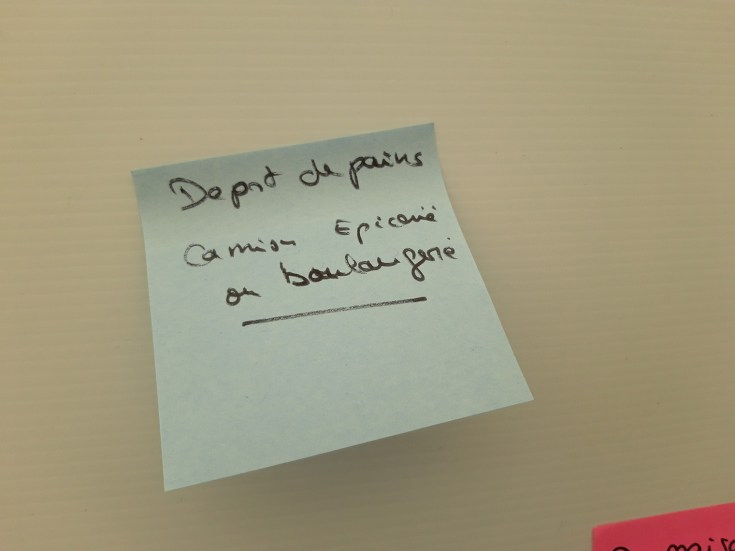 Depot de pains
Camion Epicerie
ou boulangerie